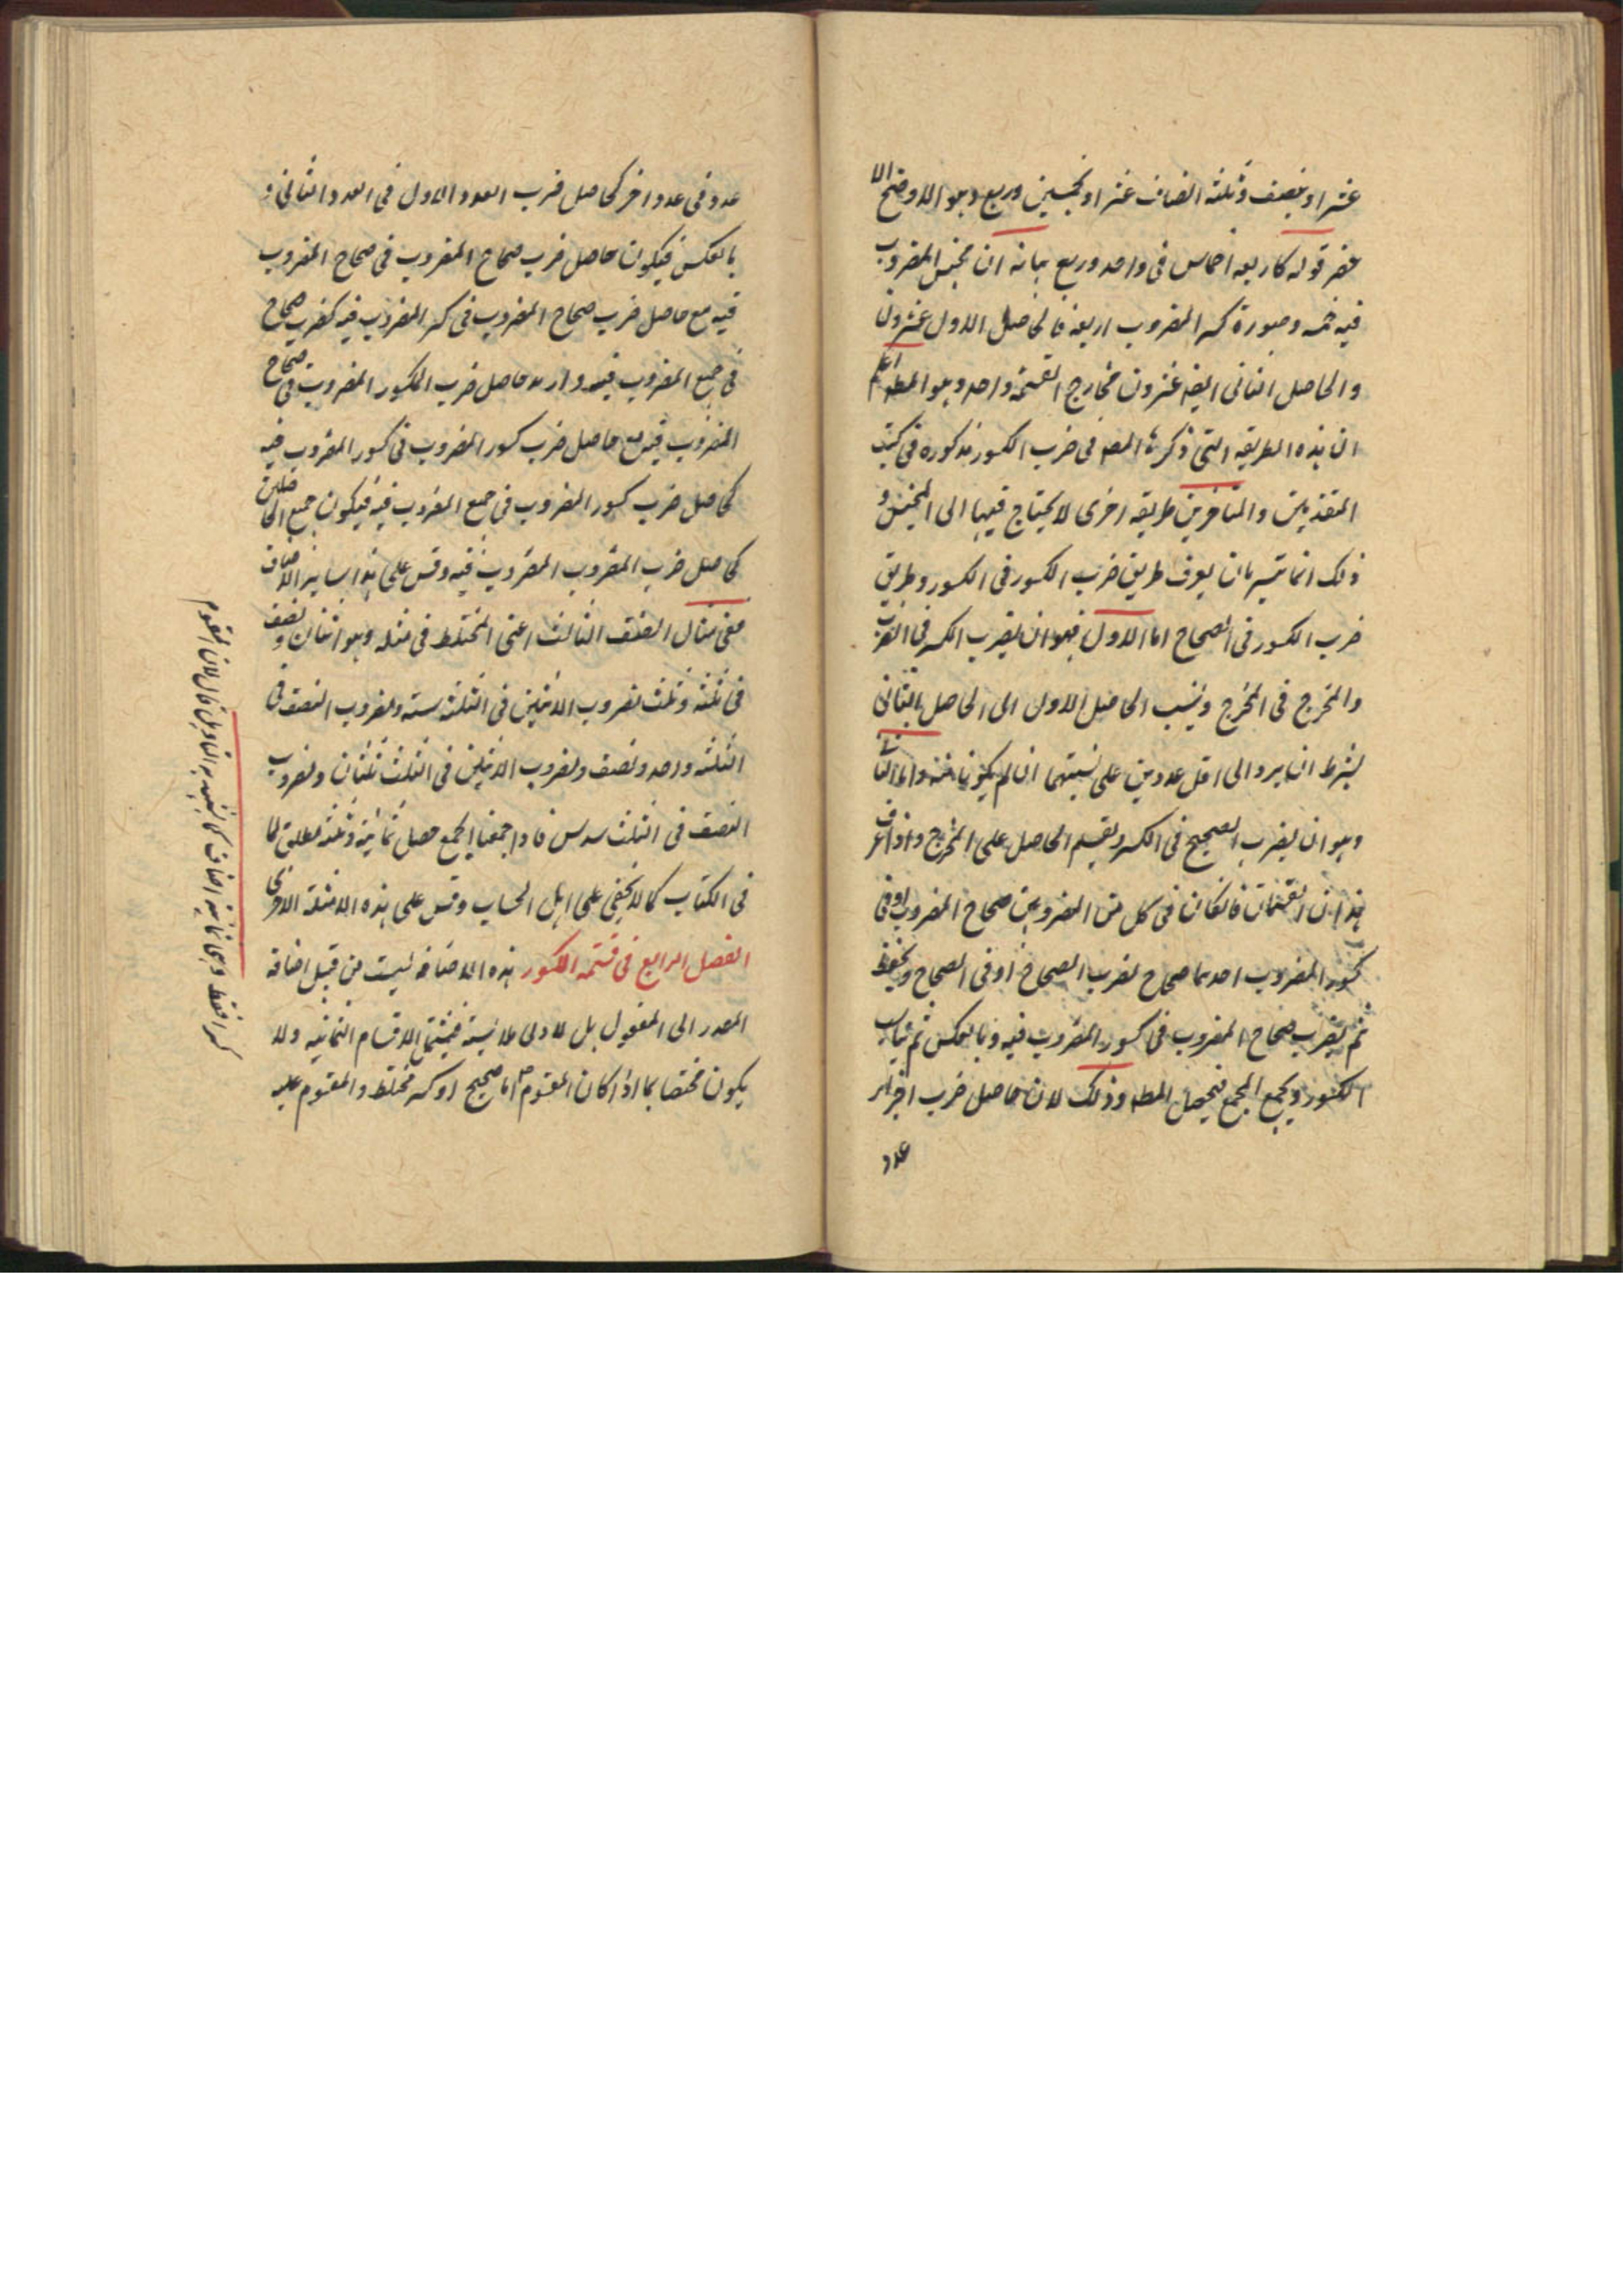 عشر او بنصف وثلثة انصاف عشر او بخمسين وربع وهو الاوضح الا
خصر قوله كاربعة اخماس فى واحد وربع بيانه ان مجنس المضروب
فيه خمسة وصورة كسر المضروب اربعة فالحاصل الاول عشرون
والحاصل الثانى ايضه عشرون فخارج القسمة واحد وهو المطه اعلم
ان هذه الطريقه التى ذكرها المصه فى ضرب الكسور مذكوره فى كتب
المتقدمين والمتاخرين طريقه اخرى لا يحتاج فيها الى التجنيس و
ذلك انما تتيسر بان يعرف طريق ضرب الكسور فى الكسور وطريق
ضرب الكسور فى الصحاح اما الاول فهو ان يضرب الكسر فى الكسر
والمخرج فى المخرج وينسب الحاصل الاول الى الحاصل الثانى
بشرط ان يرد الى اقل عددين على نسبتهما ان لم يكونا منه واما الثانى
وهو ان يضرب الصحيح فى الكسر ويقسم الحاصل على المخرج واذا عرف
هذان القسمان فان كان فى كل من المضروبين صحاح المضروب او فى
كسور المضروب احدهما صحاح تضرب الصحاح او فى الصحاح ويحفظ
ثم يضرب صحاح المضروب فى كسور المضروب فيه وبالعكس ثم
الكسور ويجمع الجميع فيحصل المطه وذلك لان حاصل ضرب اجزاء
عدد
عدد فى عدد اخر كحاصل ضرب العدد الاول فى العدد الثانى و
بالعكس فيكون حاصل ضرب صحاح المضروب فى صحاح المضروب
فيه مع حاصل ضرب صحاح المضروب فى كسر المضروب فيه كضرب صحاح
فى جميع المضروب فيه و حاصل ضرب الكسور المضروب فى صحاح
المضروب فيه مع حاصل ضرب كسور المضروب فى كسور المضروب فيه
كحاصل ضرب كسور المضروب فى جميع المضروب فيه فيكون جميع الحاصلين
كحاصل ضرب المضروب المضروب فيه وقس على هذا سائر الاصناف
ففى مثال الصنف الثالث اعنى المختلط فى مثله وهو اثنان ونصف
فى ثلثة وثلث مضروب الاثنين فى الثلثة ستة ومضروب النصف فى
الثلثة واحد ونصف ومضروب الاثنين فى الثلث ثلثان ومضروب
النصف فى الثلث سدس فاذا جمعنا الجميع حصل ثمانية وثلث مطابق لما
فى الكتاب كما لا يخفى على اهل الحساب وقس على هذه الامثلة الاخرى
الفصل الرابع فى قسمة الكسور هذه الاضافة ليست من قبيل اضافة
المصدر الى المفعول بل لادنى ملابسة فيشتمل الاقسام الثمانية ولا
يكون مختصا بما اذا كان المقسوم اما صحيح او كسر مختلط والمقسوم عليه
كسرا فقط وهى ثمانية اصناف كما لان المقسوم